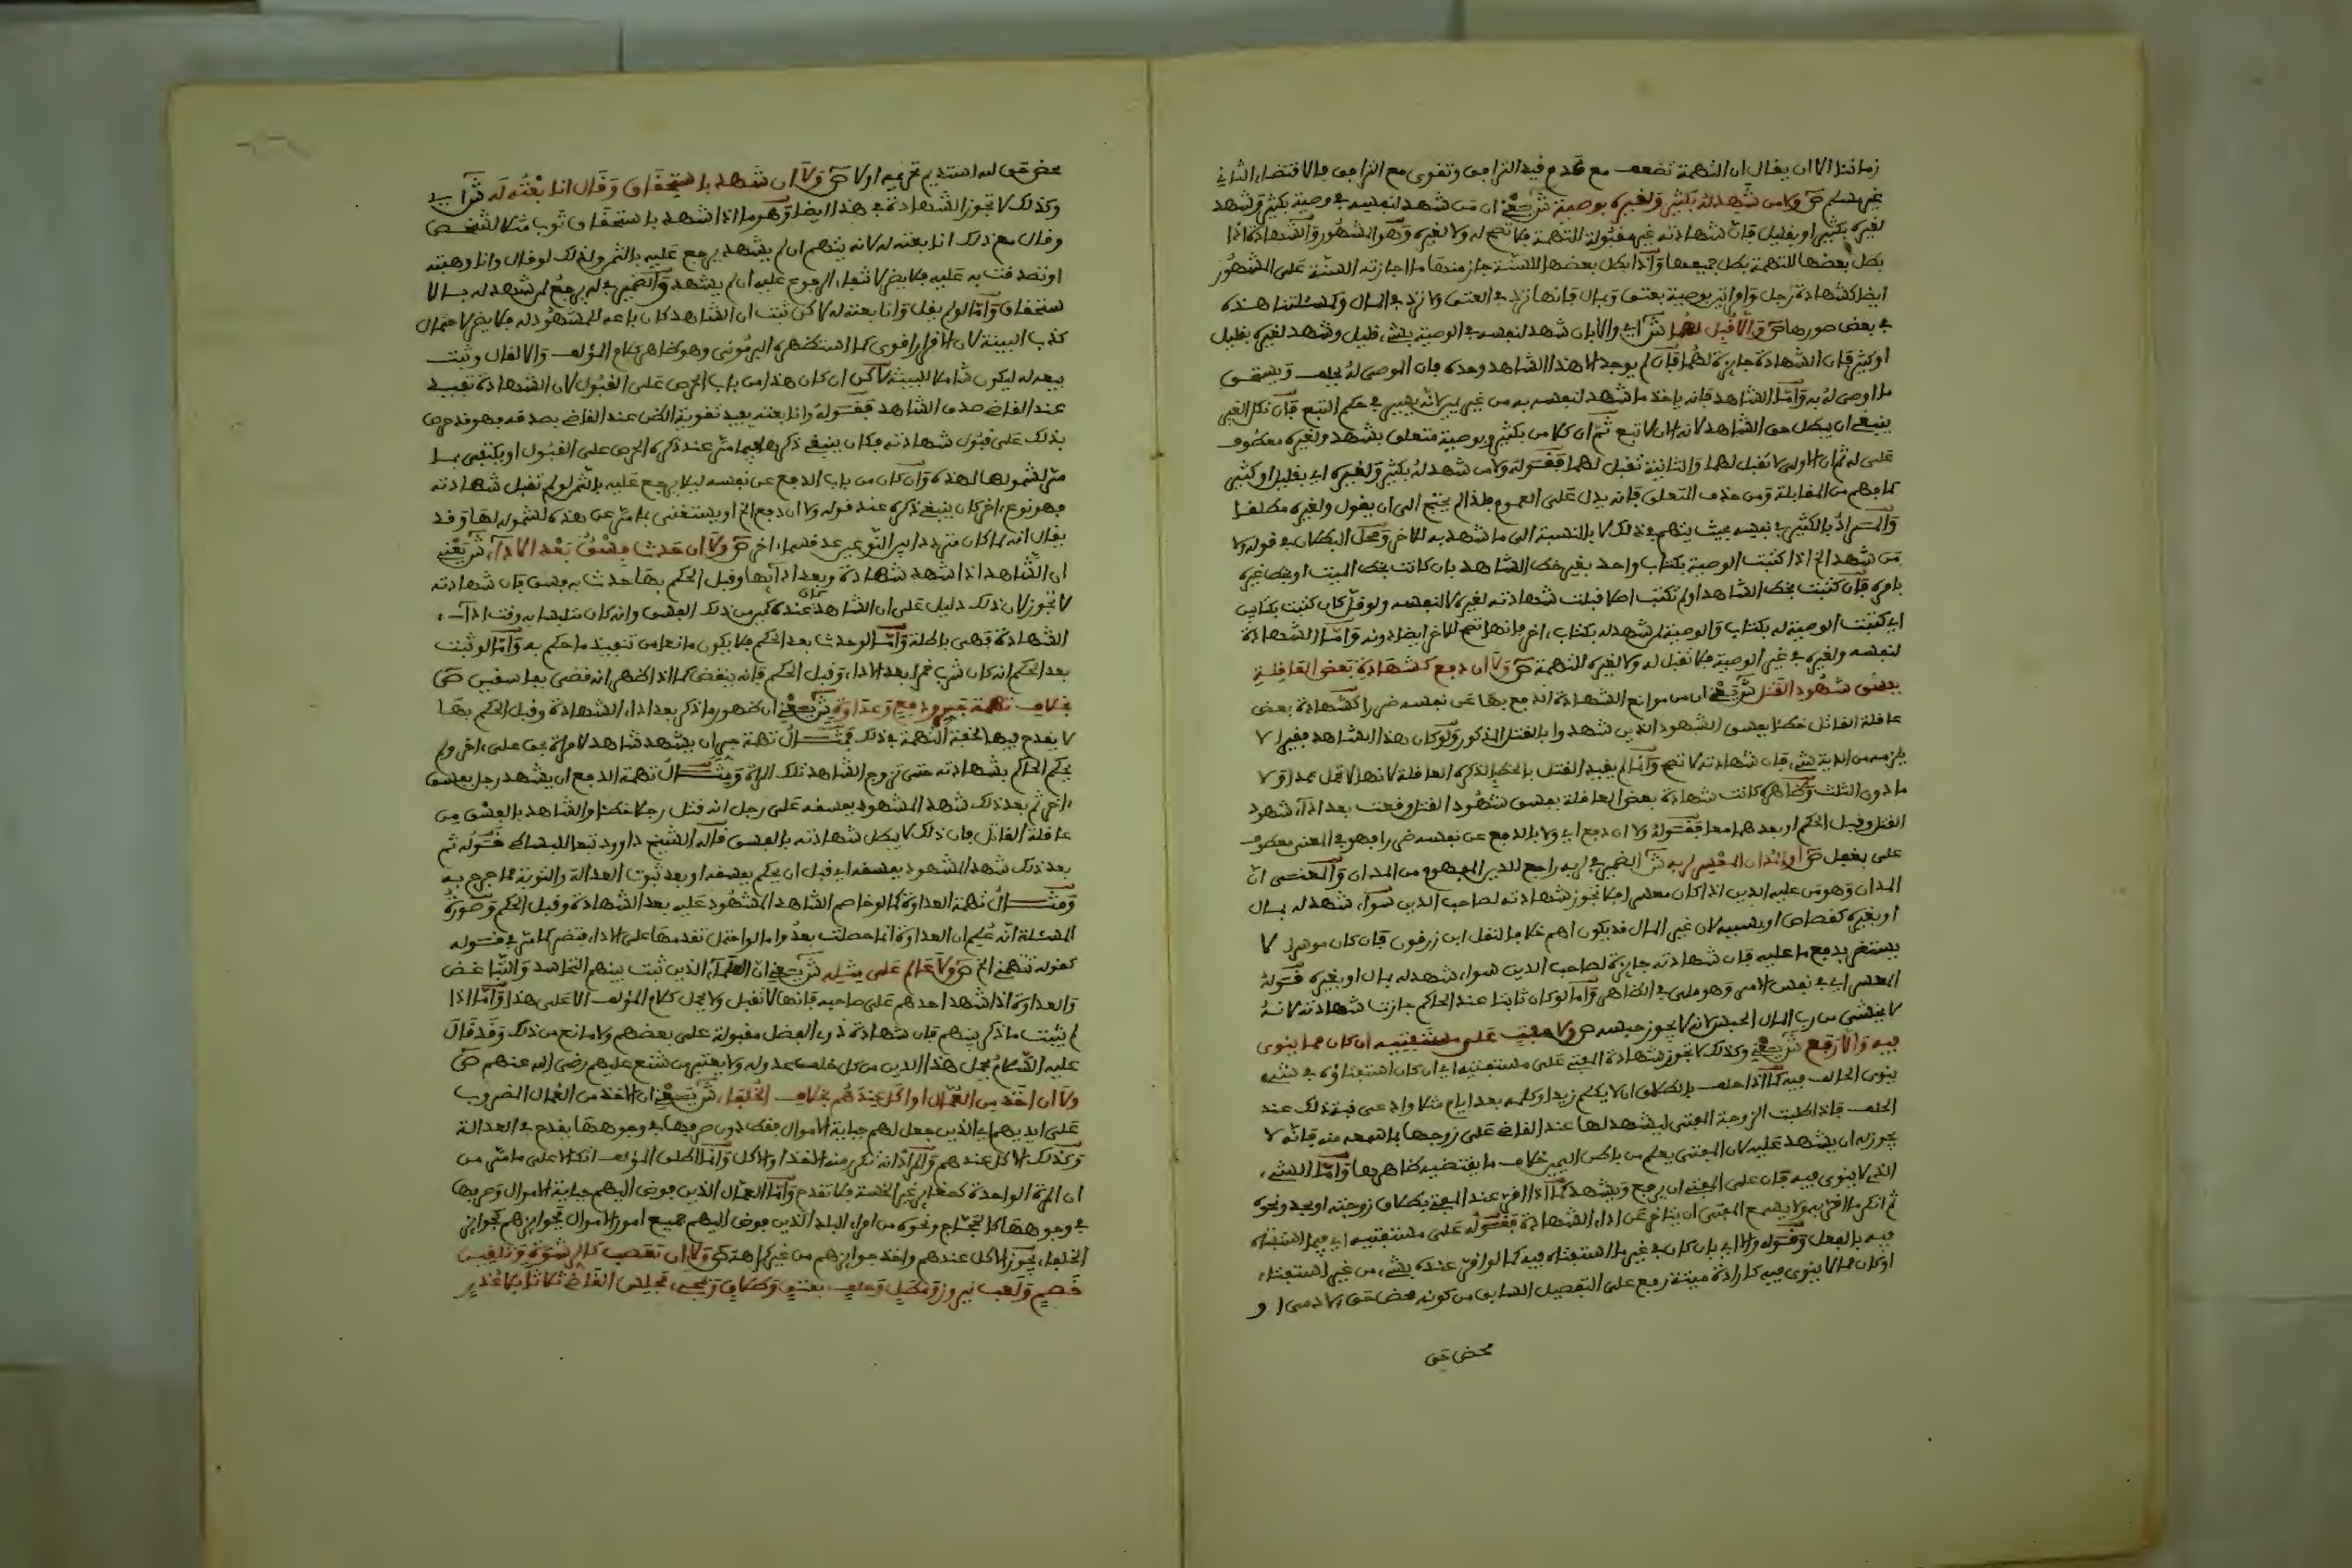 زماننا الا ان يقال ان التهمة تضعف مع عدم قيد التراخي وتقوى مع التراخي بالاقتضاء الثاني
غير مسلم ص ولا من شهد له بكثير ولغيره بوصية ش يعني ان من شهد لنفسه في وصية بكثير وشهد
لغيره بكثير او بقليل فان شهادته غير مقبولة للتهمة فلا تصح له ولا لغيره وهو المشهور والشهادة اذا
بطل بعضها للتهمة بطل جميعها واذا بطل بعضها للسنة جاز منها ما اجازته السنة على المشهور
ايضا كشهادة رجل وامراتين بوصية بعتق ومال فانها ترد في العتق ولا ترد في المال ومسئلتنا هذه
في بعض صورها ص والا قبل لهما ش اي والا بان شهد لنفسه في الوصية بشيء قليل وشهد لغيره بقليل
او كثير فان الشهادة جايزة لهما فان لم يوجد الا هذا الشاهد وحده فان الموصى له يحلف ويستحق
ما اوصى له به واما الشاهد فانه ياخذ ما شهد لنفسه به من غير يمين لانه يصير في حكم التبع فان نكل الغير
ينبغي ان يبطل حق الشاهد لانه الان لا تبع ثم ان كلا من بكثير وبوصية متعلق بشهد ولغيره معطوف
على له ثم ان الاولى لا تقبل لهما والثانية تقبل لهما فقوله ولا من شهد له بكثير ولغيره اي بقليل او كثير
كما فهم من المقابلة ومن حذف المتعلق فانه يدل على العموم فلذا لم يحتج الى ان يقول ولغيره مطلقا
والمراد بالكثير في نفسه بحيث يتهم في ذلك لا بالنسبة الى ما شهد به للاخر ومحل البطلان في قوله ولا
من شهد الخ اذا كتبت الوصية بكتاب واحد بغير خط الشاهد بان كانت بخط الميت او بخط غيره
بامره فان كتبت بخط الشاهد او لم تكتب اصلا قبلت شهادته لغيره لا لنفسه ولو قل كان كتبت بكتابين
اي كتبت الوصية له بكتاب والوصية لمن شهد له بكتاب اخر فانها تصح للاخر ايضا دونه واما الشهادة
لنفسه ولغيره في غير الوصية فلا تقبل له ولا لغيره للتهمة ص ولا ان دفع كشهادة بعض العاقلة
بفسق شهود القتل ش يعني ان من موانع الشهادة الدفع بها عن نفسه ضررا كشهادة بعض
عاقلة القاتل خطئا بفسق الشهود الذين شهدوا بالقتل المذكور ولو كان هذا الشاهد فقيرا لا
يلزمه من الدية شيء فان شهادته لا تصح وانما لم يقيد القتل بالخطا لذكره العاقلة لانها لا تحمل عمدا ولا
ما دون الثلث وظاهره كانت شهادة بعض العاقلة بفسق شهود القتل وقعت بعد اداء شهود
القتل وقبل الحكم او بعدهما معا فقوله ولا ان دفع اي ولا بالدفع عن نفسه ضررا فهو في المعنى معطوف
على بفعل ص او المدان المعسر لربه ش الضمير في لربه راجع للدين المفهوم من المدان والمعنى ان
المدان وهو من عليه الدين اذا كان معسرا فلا تجوز شهادته لصاحب الدين سواء شهد له بمال
او بغيره كقصاص او بسببه لان غير المال قد يكون اهم خلافا لنقل ابن زرقون فان كان موسرا لا
يستضر بدفع ما عليه فان شهادته جايزة لصاحب الدين سواء شهد له بمال او بغيره فقوله
المعسر اي في نفس الامر وهو ملي في الظاهر واما لو كان ثابتا عند الحاكم جازت شهادته لانه
لا يخشى من رب المال الحبس لانه لا يجوز حبسه ص ولا مفت على مستفتيه ان كان مما ينوى
فيه والا رفع ش يعني وكذلك لا تجوز شهادة المفتي على مستفتيه اي ان كان استفتاؤه في شيء
ينوى الحالف فيه كما اذا حلف بالطلاق ان لا يكلم زيدا وكلمه بعد ايام مثلا وادعى نية ذلك عند
الحلف فاذا طلبت الزوجة المفتي ليشهد لها عند القاضي على زوجها بما سمعه منه فانه لا
يجوز له ان يشهد عليه لان المفتي يعلم من باطن اليمين خلاف ما يقتضيه ظاهرها واما الشيء
الذي لا ينوى فيه فان على المفتي ان يرفع ويشهد كما اذا اقر عند المفتي بطلاق زوجته او بحد ونحوه
ثم انكر ما اقر به ولا يسع المفتي ان يتاخر عن اداء الشهادة فقوله على مستفتيه اي فيما استفتاه
فيه بالفعل وقوله والا اي بان كان في غير ما استفتاه فيه كما لو اقر عنده بشيء من غير استفتاء
او كان مما لا ينوى فيه كارادة ميتة رفع على التفصيل السابق من كونه محض حق الادمي او
محض حق
محض حق لله استديم تحريمه او لا ص ولا ان شهد باستحقاق وقال انا بعته له ش اي
وكذلك لا تجوز الشهادة في هذا ايضا وهو ما اذا شهد باستحقاق ثوب مثلا لشخص
وقال مع ذلك انا بعته له لانه يتهم ان لم يشهد يرجع عليه بالثمن وكذلك لو قال وانا وهبته
او تصدقت به عليه فلا يضر لانتفاء الرجوع عليه ان لم يشهد والضمير في له يرجع لمن شهد له بالا
ستحقاق واما لو لم يقل وانا بعته له لاكن ثبت ان الشاهد كان باعه للمشهود له فلا يضر لاحتمال
كذب البينة لان الاقرار اقوى كما استظهره البرموني وهو ظاهر كلام المؤلف والا لقال وثبت
بيعه له ليكون شاملا للبينة لاكن ان كان هذا من باب الحرص على القبول لان الشهادة تفيد
عند القاضي صدق الشاهد فقوله وانا بعته يفيد تقوية الظن عند القاضي بصدقه فهو قد حرص
بذلك على قبول شهادته فكان ينبغي ذكرها فيما مر عند ذكره الحرص على القبول او يكتفى بما
مر لشمولها لهذه وان كان من باب الدفع عن نفسه ليلا يرجع عليه بالثمن لو لم تقبل شهادته
فهو نوع اخر كان ينبغي ذكره عند قوله ولا ان دفع الخ او يستغنى بما مر عن هذه لشموله لها وقد
يقال انه لما كان مترددا بين النوعين عد قسما اخر ص ولا ان حدث فسق بعد الاداء ش يعني
ان الشاهد اذا شهد شهادة وبعد ادائها وقبل الحكم بها حدث به فسق فان شهادته
لا تجوز لان ذلك دليل على ان الشاهد كان عنده كمين من ذلك الفسق وانه كان متلبسا به وقت اداء
الشهادة فهي باطلة واما لو حدث بعد الحكم فلا يكون مانعا من تنفيذ ما حكم به واما لو ثبت
بعد الحكم انه كان شرب خمرا بعد الاداء وقبل الحكم فانه ينقض كما اذا ظهر انه قضى بفاسقين ص
بخلاف تهمة جر ودفع وعداوة ش يعني ان ظهور ما ذكر بعد اداء الشهادة وقبل الحكم بها
لا يقدح فيها لخفة التهمة في ذلك فمثال تهمة جر ان يشهد شاهد لامراة بحق على اخر ولم
يحكم الحاكم بشهادته حتى تزوج الشاهد تلك المراة ومثال تهمة الدفع ان يشهد رجل بفسق
اخر ثم بعد ذلك شهد المشهود بفسقه على رجل انه قتل رجلا خطئا والشاهد بالفسق من
عاقلة القاتل فان ذلك لا يبطل شهادته بالفسق قاله الشيخ داوود تبعا للبساطي فقوله ثم
بعد ذلك شهد المشهود بفسقه اي قبل ان يحكم بفسقه او بعد ثبوت العدالة والتوبة مما جرح به
ومثال تهمة العداوة كما لو خاصم الشاهد المشهود عليه بعد الشهادة وقبل الحكم وصورة
المسئلة انه علم ان العداوة انما حصلت بعد واما لو احتمل تقدمها على الاداء فتضر كما مر في قوله
كقوله تتهمني الخ ص ولا عالم على مثله ش يعني ان العلماء الذين ثبت بينهم التحاسد والتباغض
والعداوة اذا شهد احدهم على صاحبه فانها لا تقبل ولا يحمل كلام المؤلف الا على هذا واما اذا
لم يثبت ما ذكر بينهم فان شهادة ذوي الفضل مقبولة على بعضهم ولا مانع من ذلك وقد قال
عليه السلام يحمل هذا الدين من كل خلف عدوله ولا يعتبر من شنع عليهم رضي الله عنهم ص
ولا ان اخذ من العمال او اكل عندهم بخلاف الخلفاء ش يعني ان الاخذ من العمال المضروب
على ايديهم اي الذين جعل لهم جباية الاموال فقط دون صرفها في وجوهها يقدح في العدالة
وكذلك الاكل عندهم والمراد انه تكرر منه الاخذ او الاكل وانما اطلق المؤلف اتكالا على ما مر من
ان المرة الواحدة كصغاير غير الخسة فلا تقدح واما العمال الذين فوض اليهم جباية الاموال وصرفها
في وجوهها كالحجاج ونحوه من امراء البلد الذين فوض اليهم جميع امور الاموال فجوايزهم كجوايز
الخلفاء يجوز الاكل عندهم واخذ جوايزهم من غير كراهة ص ولا ان تعصب كالرشوة وتلقين
خصم ولعب نيروز ومطل وحلف بعتق وطلاق ومجيء مجلس القاضي ثلاثا بلا عذر